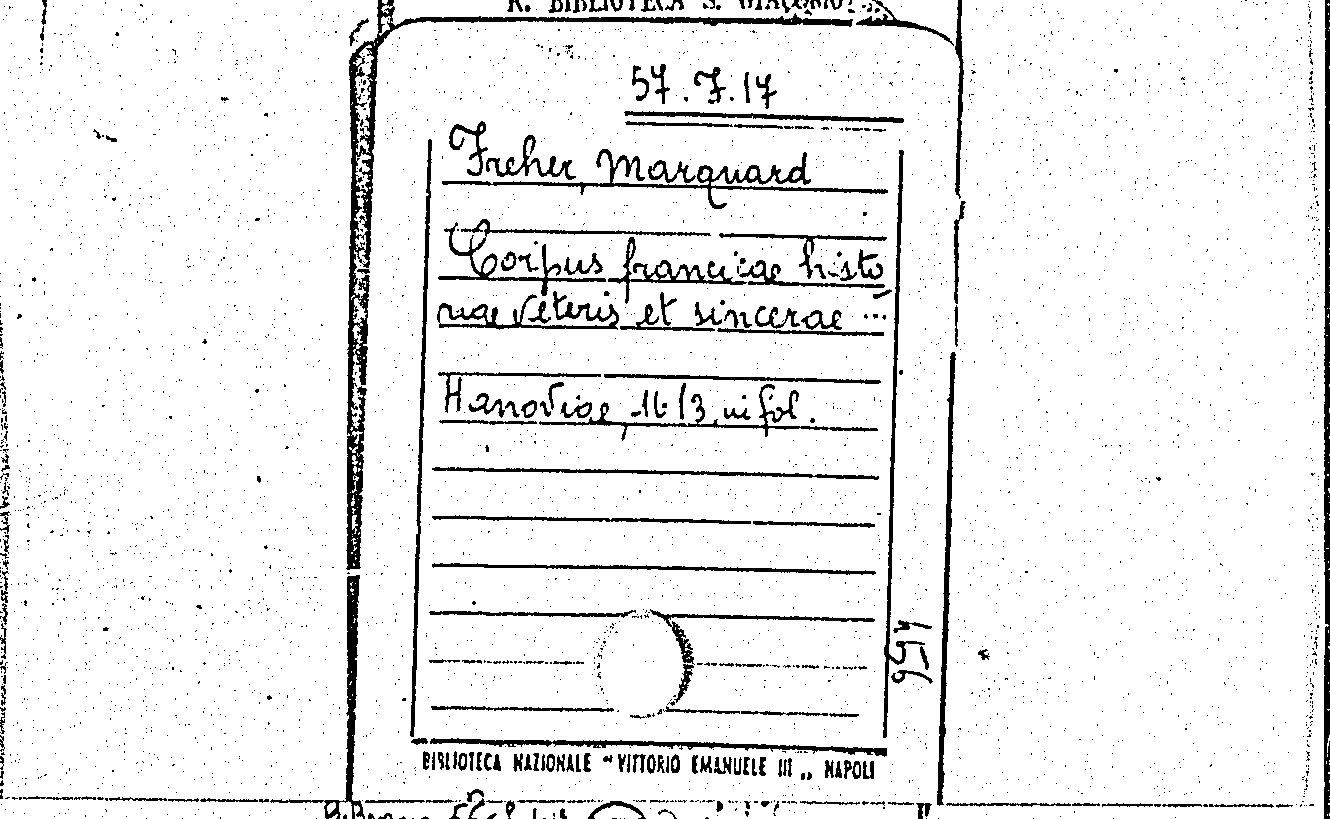 R. BIBLIOTECA S. GIACOMO
57.J.17
Freher, Marquard
Corpus francicae histo
riae veteris et sincerae ...
Hanoviae, 1613, in fol.
456
BIBLIOTECA NAZIONALE "VITTORIO EMANUELE III „ NAPOLI